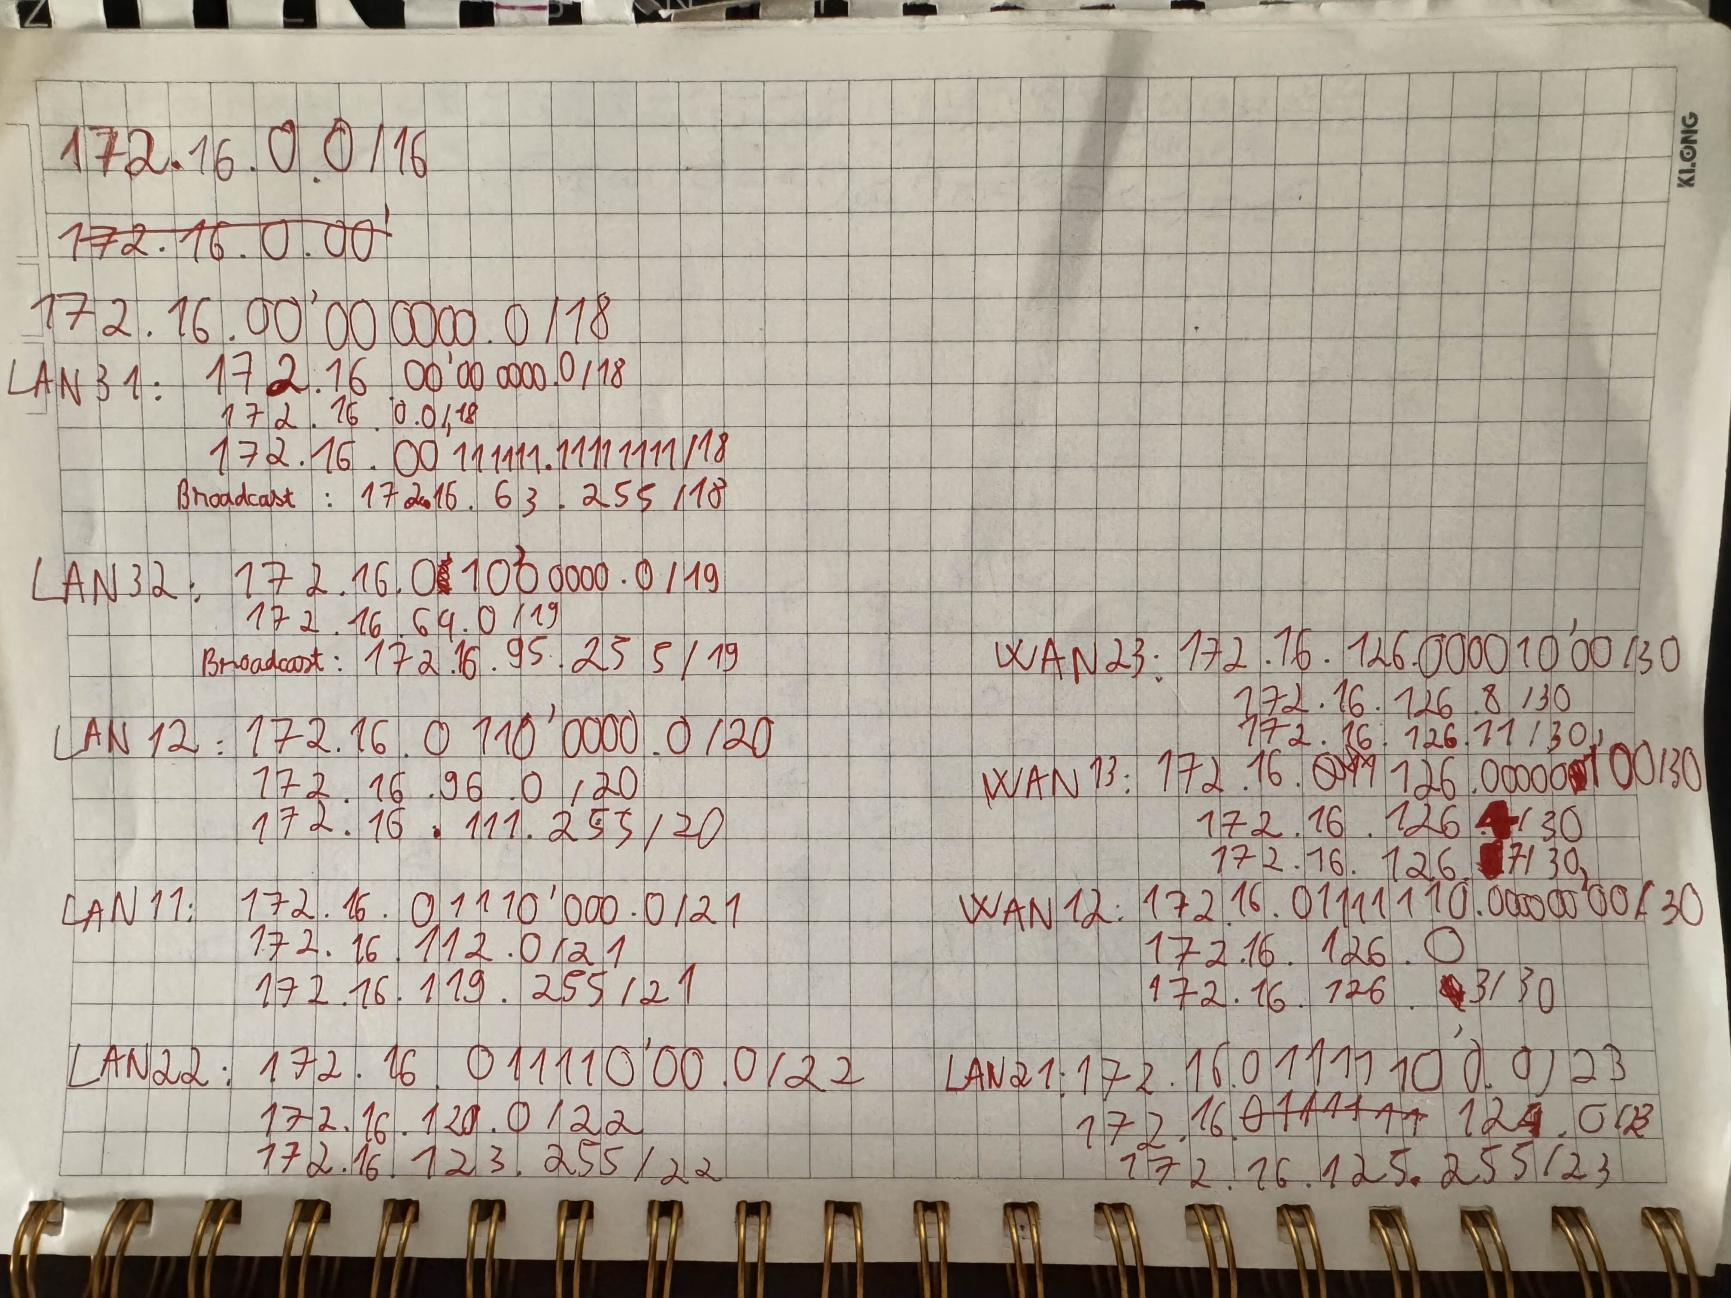 172.16.0.0/16
172.16.0.00'
172.16.00'000000.0/18
LAN31: 172.16 00'000000.0/18
172.16.0.0/18
172.16.00111111.11111111/18
Broadcast: 172.16.63.255/18
LAN32: 172.16.010'00000.0/19
172.16.64.0/19
Broadcast: 172.16.95.255/19
LAN12: 172.16.0110'0000.0/20
172.16.96.0/20
172.16.111.255/20
LAN11: 172.16.01110'000.0/21
172.16.112.0/21
172.16.119.255/21
LAN22: 172.16.011110'00.0/22
172.16.120.0/22
172.16.123.255/22
KLONG
WAN23: 172.16.126.000010'00/30
172.16.126.8/30
172.16.126.11/30
WAN13: 172.16. 126.00000100/30
172.16.126.4/30
172.16.126.7/30
WAN12: 172.16.01111110.000000'00/30
172.16.126.0
172.16.126.3/30
LAN21: 172.16.0111110'0.0/23
172.16.0111111 124.0/23
172.16.125.255/23